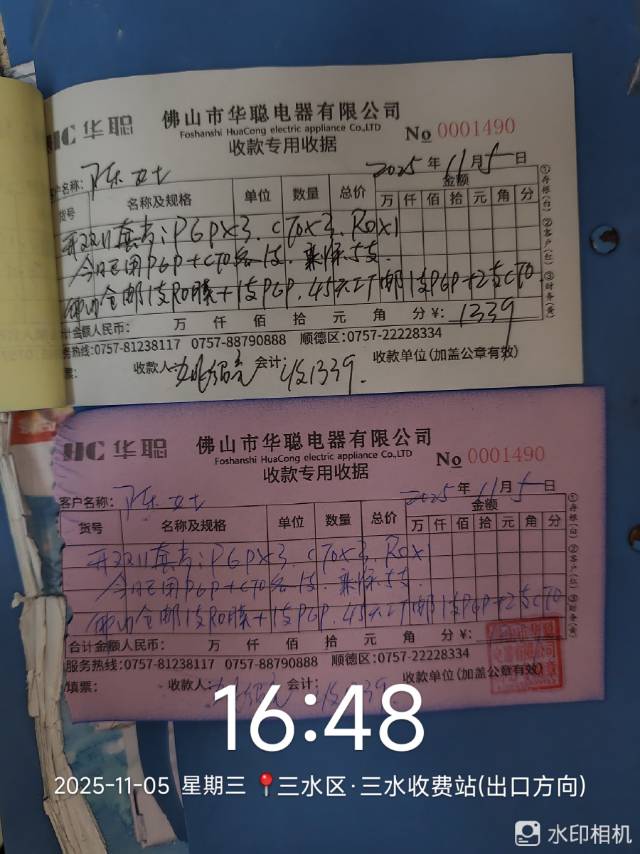 HC 华聪
佛山市华聪电器有限公司
Foshanshi HuaCong electric appliance Co.,LTD
收款专用收据
No 0001490
客户名称: 陈女士
2025 年 11 月 5 日
货号 名称及规格 单位 数量 总价 金额
万 仟 佰 拾 元 角 分
开双11套考:PGPX3. CTOX3. ROX1
今日已用PGP+CTO各1支. 剩余5支.
1支RO膜+1支PGP. 45天 邮1支PGP+2支CTO
合计金额人民币: 万 仟 佰 拾 元 角 分 ¥: 1339
服务热线:0757-81238117 0757-88790888 顺德区:0757-22228334
收款人: 会计: 收1339. 收款单位(加盖公章有效)
①存根(白) ②客户(红) ③财务(黄)
HC 华聪
佛山市华聪电器有限公司
Foshanshi HuaCong electric appliance Co.,LTD
收款专用收据
No 0001490
客户名称: 陈女士
2025 年 11 月 5 日
货号 名称及规格 单位 数量 总价 金额
万 仟 佰 拾 元 角 分
开双11套考:PGPX3. CTOX3. ROX1
今日已用PGP+CTO各1支. 剩余5支.
1支RO膜+1支PGP. 45天 邮1支PGP+2支CTO
合计金额人民币: 万 仟 佰 拾 元 角 分 ¥:
服务热线:0757-81238117 0757-88790888 顺德区:0757-22228334
填票: 收款人: 会计: 收1339 收款单位(加盖公章有效)
①存根(白) ②客户(红) ③财务(黄)
16:48
2025-11-05 星期三 三水区·三水收费站(出口方向)
水印相机